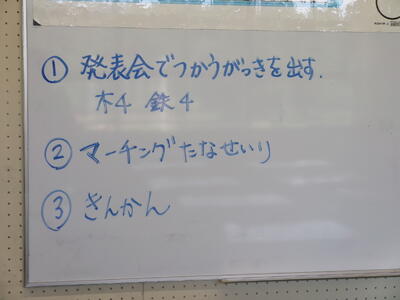 ① 発表会でつかうがっきを出す.
木4 鉄4
② マーチングたなせいり
③ きんかん